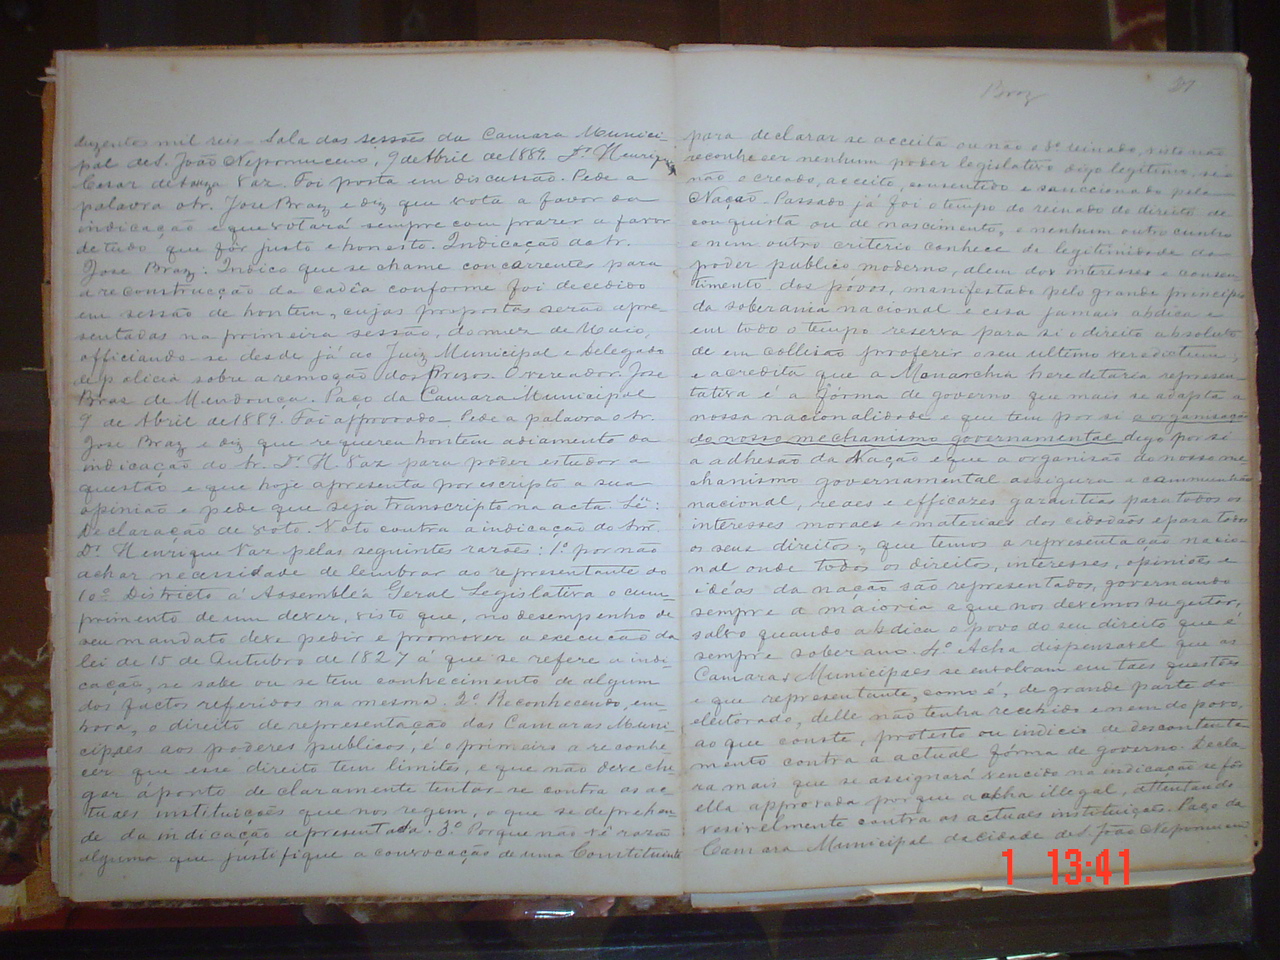 duzentos mil reis - Sala das sessões da Camara Munici-
pal de S. João Nepomuceno, 9 de Abril de 1889. Dr. Henrique
Cesar de Souza Vaz. Foi posta em discussão. Pede a
palavra o sr. José Braz e diz que vota a favor da
indicação e que votará sempre com prazer a favor
de tudo que fôr justo e honesto. Indicação do sr.
José Braz: Indico que se chame concurrentes para
a reconstrucção da cadêa conforme foi decedido
em sessão de hontem, cujas propostas serão apre-
sentadas na primeira sessão, do mez de Maio,
officiando-se desde já ao Juiz Municipal e Delegado
de policia sobre a remoção dos Prezos. O vereador José
Bras de Mendonça. Paço da Camara Municipal
9 de Abril de 1889. Foi approvado. Pede a palavra o sr.
José Braz e diz que requereu hontem adiamento da
indicação do Sr. Dr. H. Vaz para poder estudar a
questão e que hoje apresenta por escripto a sua
opinião e pede que seja transcripto na acta. Lê:
Declaração de voto. Voto contra a indicação do Snr.
Dr. Henrique Vaz pelas seguintes rasões: 1º por não
achar necessidade de lembrar ao representante do
10º Districto á Assembléa Geral Legislativa o cum-
primento de um dever, visto que, no desempenho de
seu mandato deve pedir e promover a execução da
lei de 15 de Outubro de 1827 á que se refere a indi-
cação, se sabe ou se tem conhecimento de algum
dos factos referidos na mesma. 2º Reconhecendo, em-
bora, o direito de representação das Camaras Muni-
cipaes aos poderes publicos, é o primeiro a reconhe-
cer que esse direito tem limites, e que não deve che-
gar á ponto de claramente tentar-se contra as ac-
tuaes instituições que nos regem, o que se deprehen-
de da indicação apresentada. 3º Porque não vê razão
alguma que justifique a convocação de uma Constituinte
Braz
27
para declarar se acceita ou não o 3º reinado, visto não
reconhecer nenhum poder legislativo digo legitimo, se
não o creado, acceito, consentido e sanccionado pela
Nação. Passado já foi o tempo do reinado do direito de
conquista ou de nascimento, e nenhum outro cunho
e nem outro criterio conhece de legitimidade do
poder publico moderno, alem dos interesses e consen-
timento dos povos, manifestado pelo grande principio
da soberania nacional e essa jamais abdica e
em todo o tempo reserva para si o direito absoluto
de em collisão proferir o seu ultimo veredictum;
e acredita que a Monarchia hereditaria represen-
tativa é a fórma de governo que mais se adapta a
nossa nacionalidade e que tem por si a organisação
do nosso mechanismo governamental digo por si
a adhesão da Nação e que a organisão do nosso me-
chanismo governamental assegura a communhão
nacional, reaes e efficazes garantias para todos os
interesses moraes e materiaes dos cidadãos e para todos
os seus direitos; que temos a representação nacio-
nal onde todos os direitos, interesses, opiniões e
idéas da nação são representados, governando
sempre a maioria a que nos devemos sugeitar,
salvo quando abdica o povo do seu direito que é
sempre soberano. 4º Acha dispensavel que as
Camaras Municipaes se envolvam em taes questões
e que representante, como é, de grande parte do
eleitorado, delle não tenha recebido e nem do povo,
ao que conste, protesto ou indicio de descontenta-
mento contra a actual fórma de governo. Decla-
ra mais que se assignará vencido na indicação se fôr
ella approvada porque a acha illegal, attentando
visivelmente contra as actuaes instituições. Paço da
Camara Municipal da cidade de S. João Nepomuceno
1 13:41